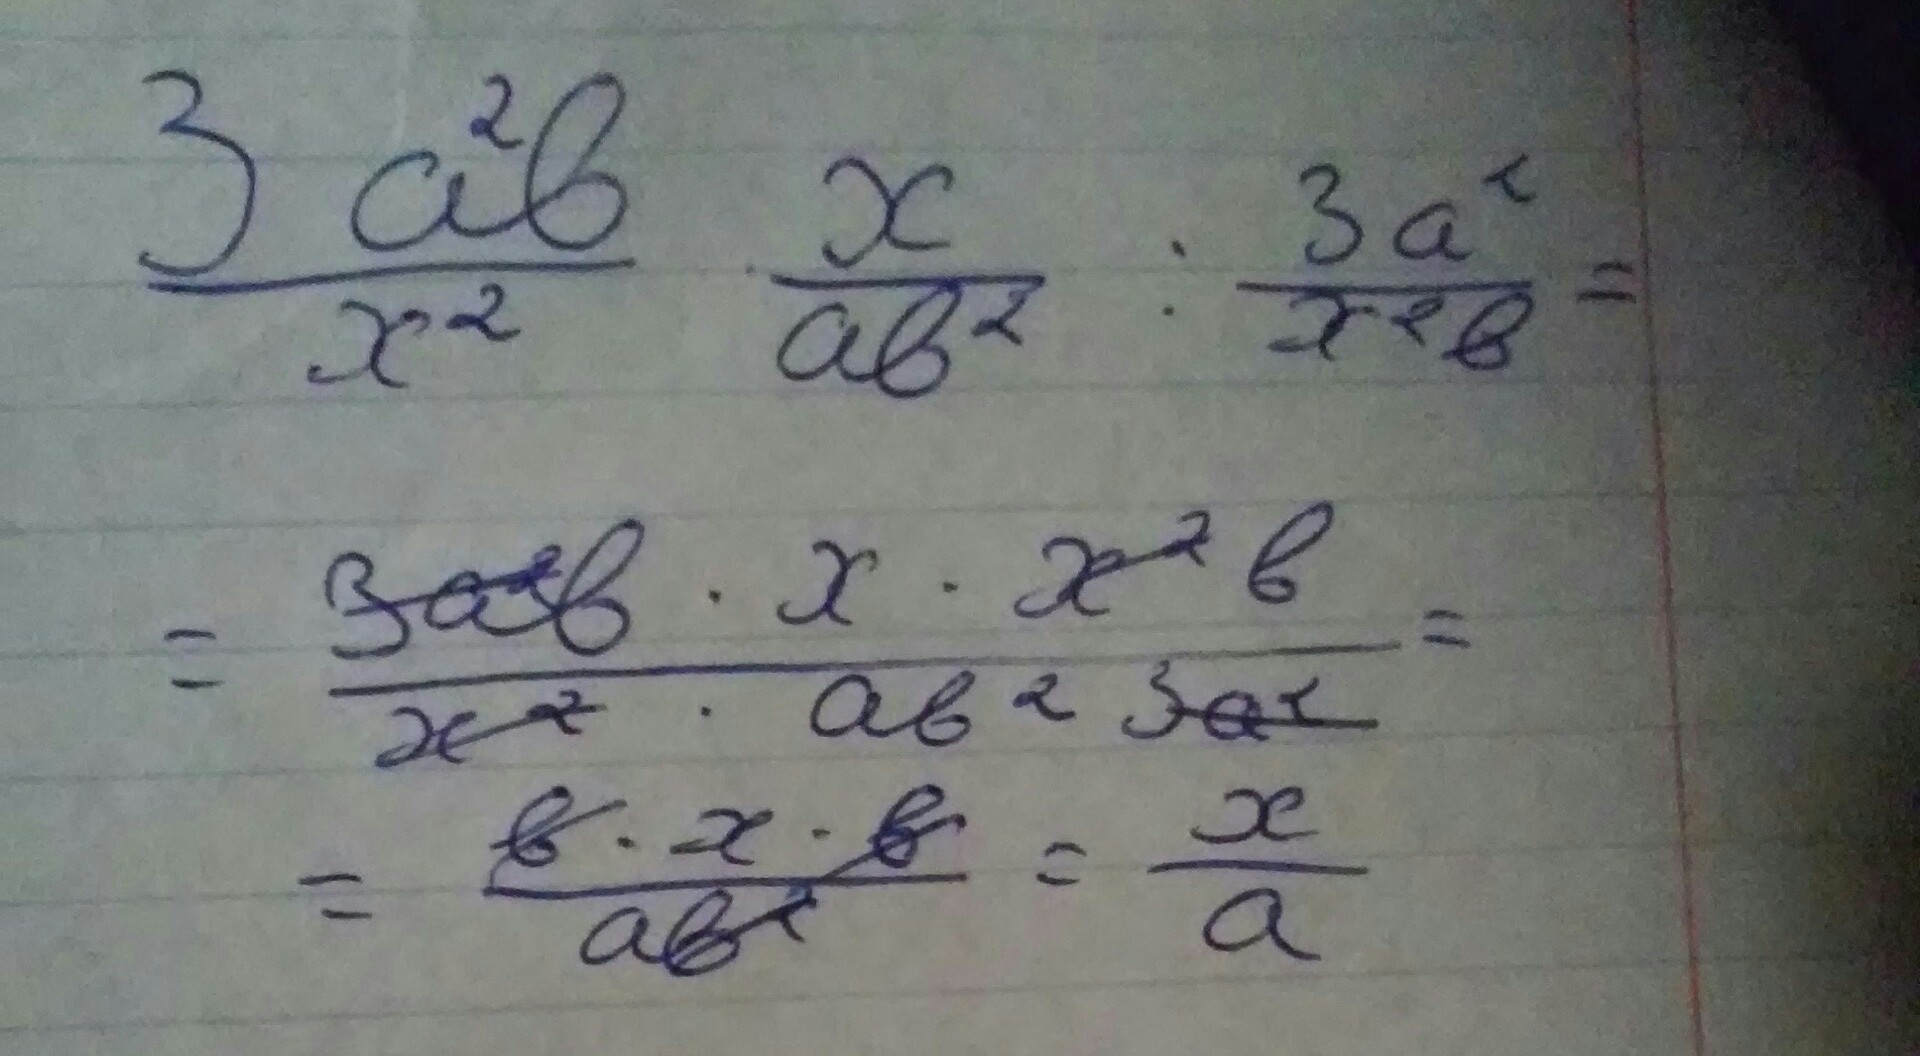 3a²b/x² · x/ab² : 3a²/x²b =
= 3a²b · x · x²b / x² · ab² 3a² =
= b · x · b / ab² = x/a